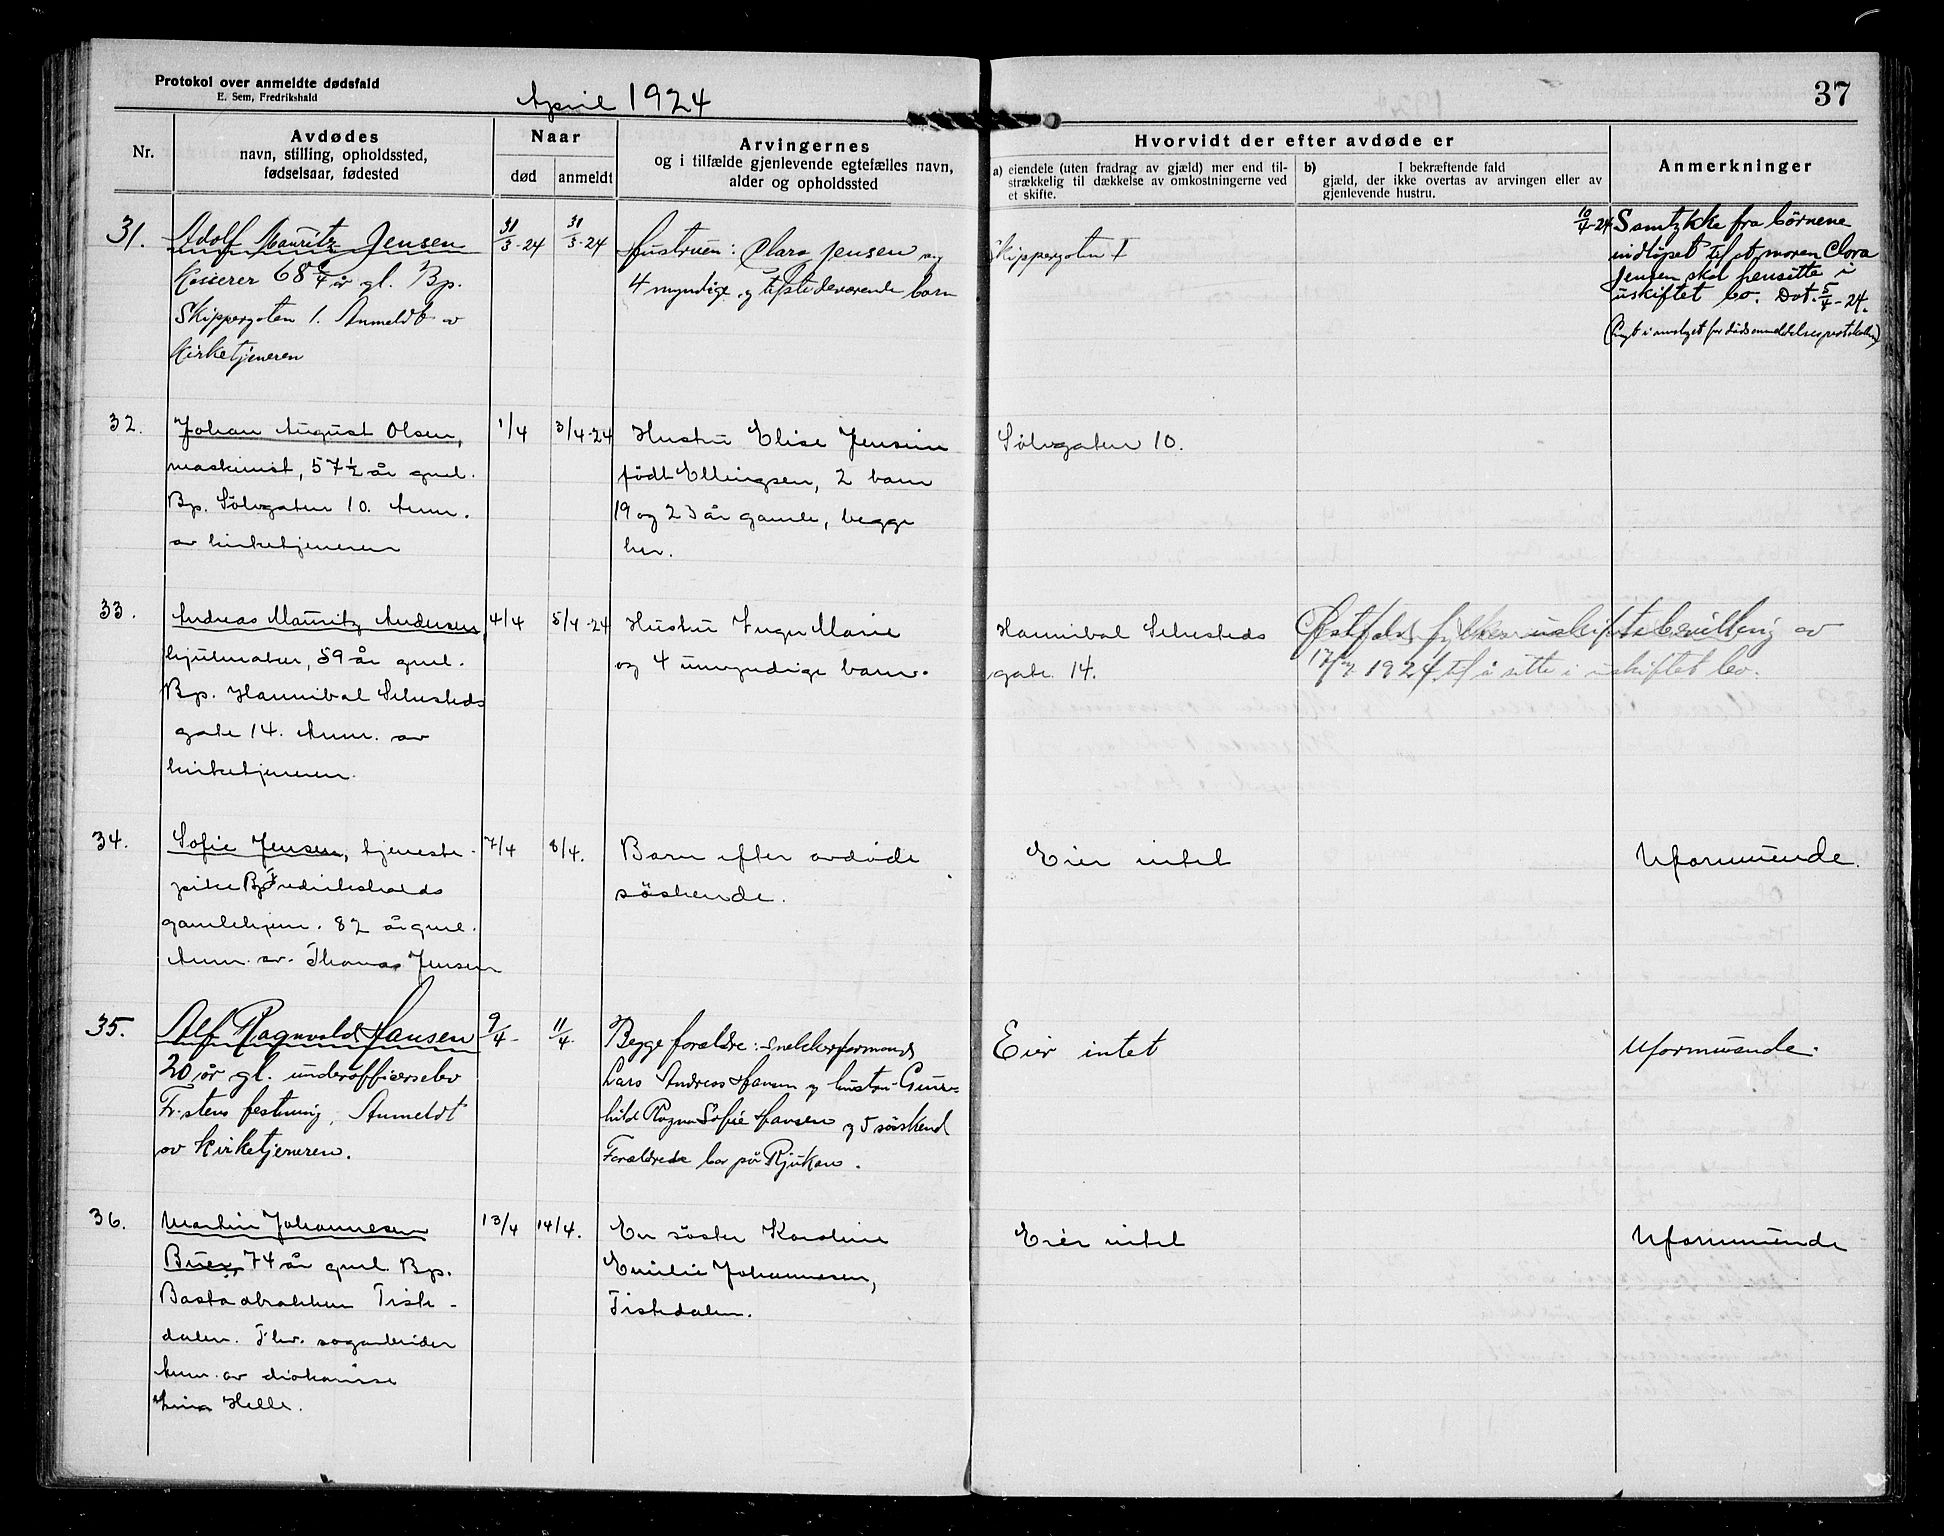 Protokol over anmeldte dødsfald
E. Sem, Fredrikshald
April 1924
37
Nr.
Avdødes
navn, stilling, opholdssted,
fødselsaar, fødested
Naar
død
anmeldt
Arvingernes
og i tilfælde gjenlevende egtefælles navn,
alder og opholdssted
Hvorvidt der efter avdøde er
a) eiendele (uten fradrag av gjæld) mer end til-
strækkelig til dækkelse av omkostningerne ved
et skifte.
b) I bekræftende fald
gjæld, der ikke overtas av arvingen eller av
gjenlevende hustru.
Anmerkninger
31.
Adolf Mauritz Jensen
Kasserer 68 år gl. Bp.
Skippergaten 1. Anmeldt av
Kirketjeneren
31/3-24
31/3-24
Hustruen: Clara Jensen og
4 myndige og tilstedeværende barn
Skippergaten 1
10/4-24 Samtykke fra børnene
indløpet til at moren Clara
Jensen skal hensitte i
uskiftet bo. Dat. 5/4-24.
32.
Johan August Olsen,
maskinist, 57½ år gml.
Bp. Sølvgaten 10. Anm.
av kirketjeneren
1/4
3/4-24
Hustru Elise Jensine
født Ellingsen, 2 barn
19 og 23 år gamle, begge
her.
Sølvgaten 10.
33.
Andreas Mauritz Andersen,
hjulmaker, 59 år gml.
Bp. Hannibal Sehesteds
gate 14. Anm. av
kirketjeneren.
4/4
5/4-24
Hustru Inga Marie
og 4 umyndige barn.
Hannibal Sehesteds
gate 14.
Østfold fylkes uskiftebevilling av
1924 til å sitte i uskiftet bo.
34.
Sofie Jensen, tjeneste-
pike Bp. Fredrikshalds
gamlehjem. 82 år gml.
Anm. av. Thomas Jensen
7/4
8/4.
Barn efter avdøde
søskende.
Eier intet
Uformuende.
35.
Alf Ragnvald Hansen
20 år gl. underofficerselev
Fr.stens festning. Anmeldt
av Kirketjeneren.
9/4-
11/4.
Begge forældre: snekkerformand
Lars Andreas Hansen og hustru Gun-
hild Ragna Sofie Hansen og 5 søskend
Forældrede bor på Rjukan.
Eier intet
Uformuende.
36.
Martin Johannesen
Buer, 74 år gml. Bp.
Bastadbrakken Tiste-
dalen. Fhv. sagarbeider
Anm. av diakonisse
Helle.
13/4
14/4.
En søster Karoline
Emilie Johannesen,
Tistedalen.
Eier intet
Uformuende